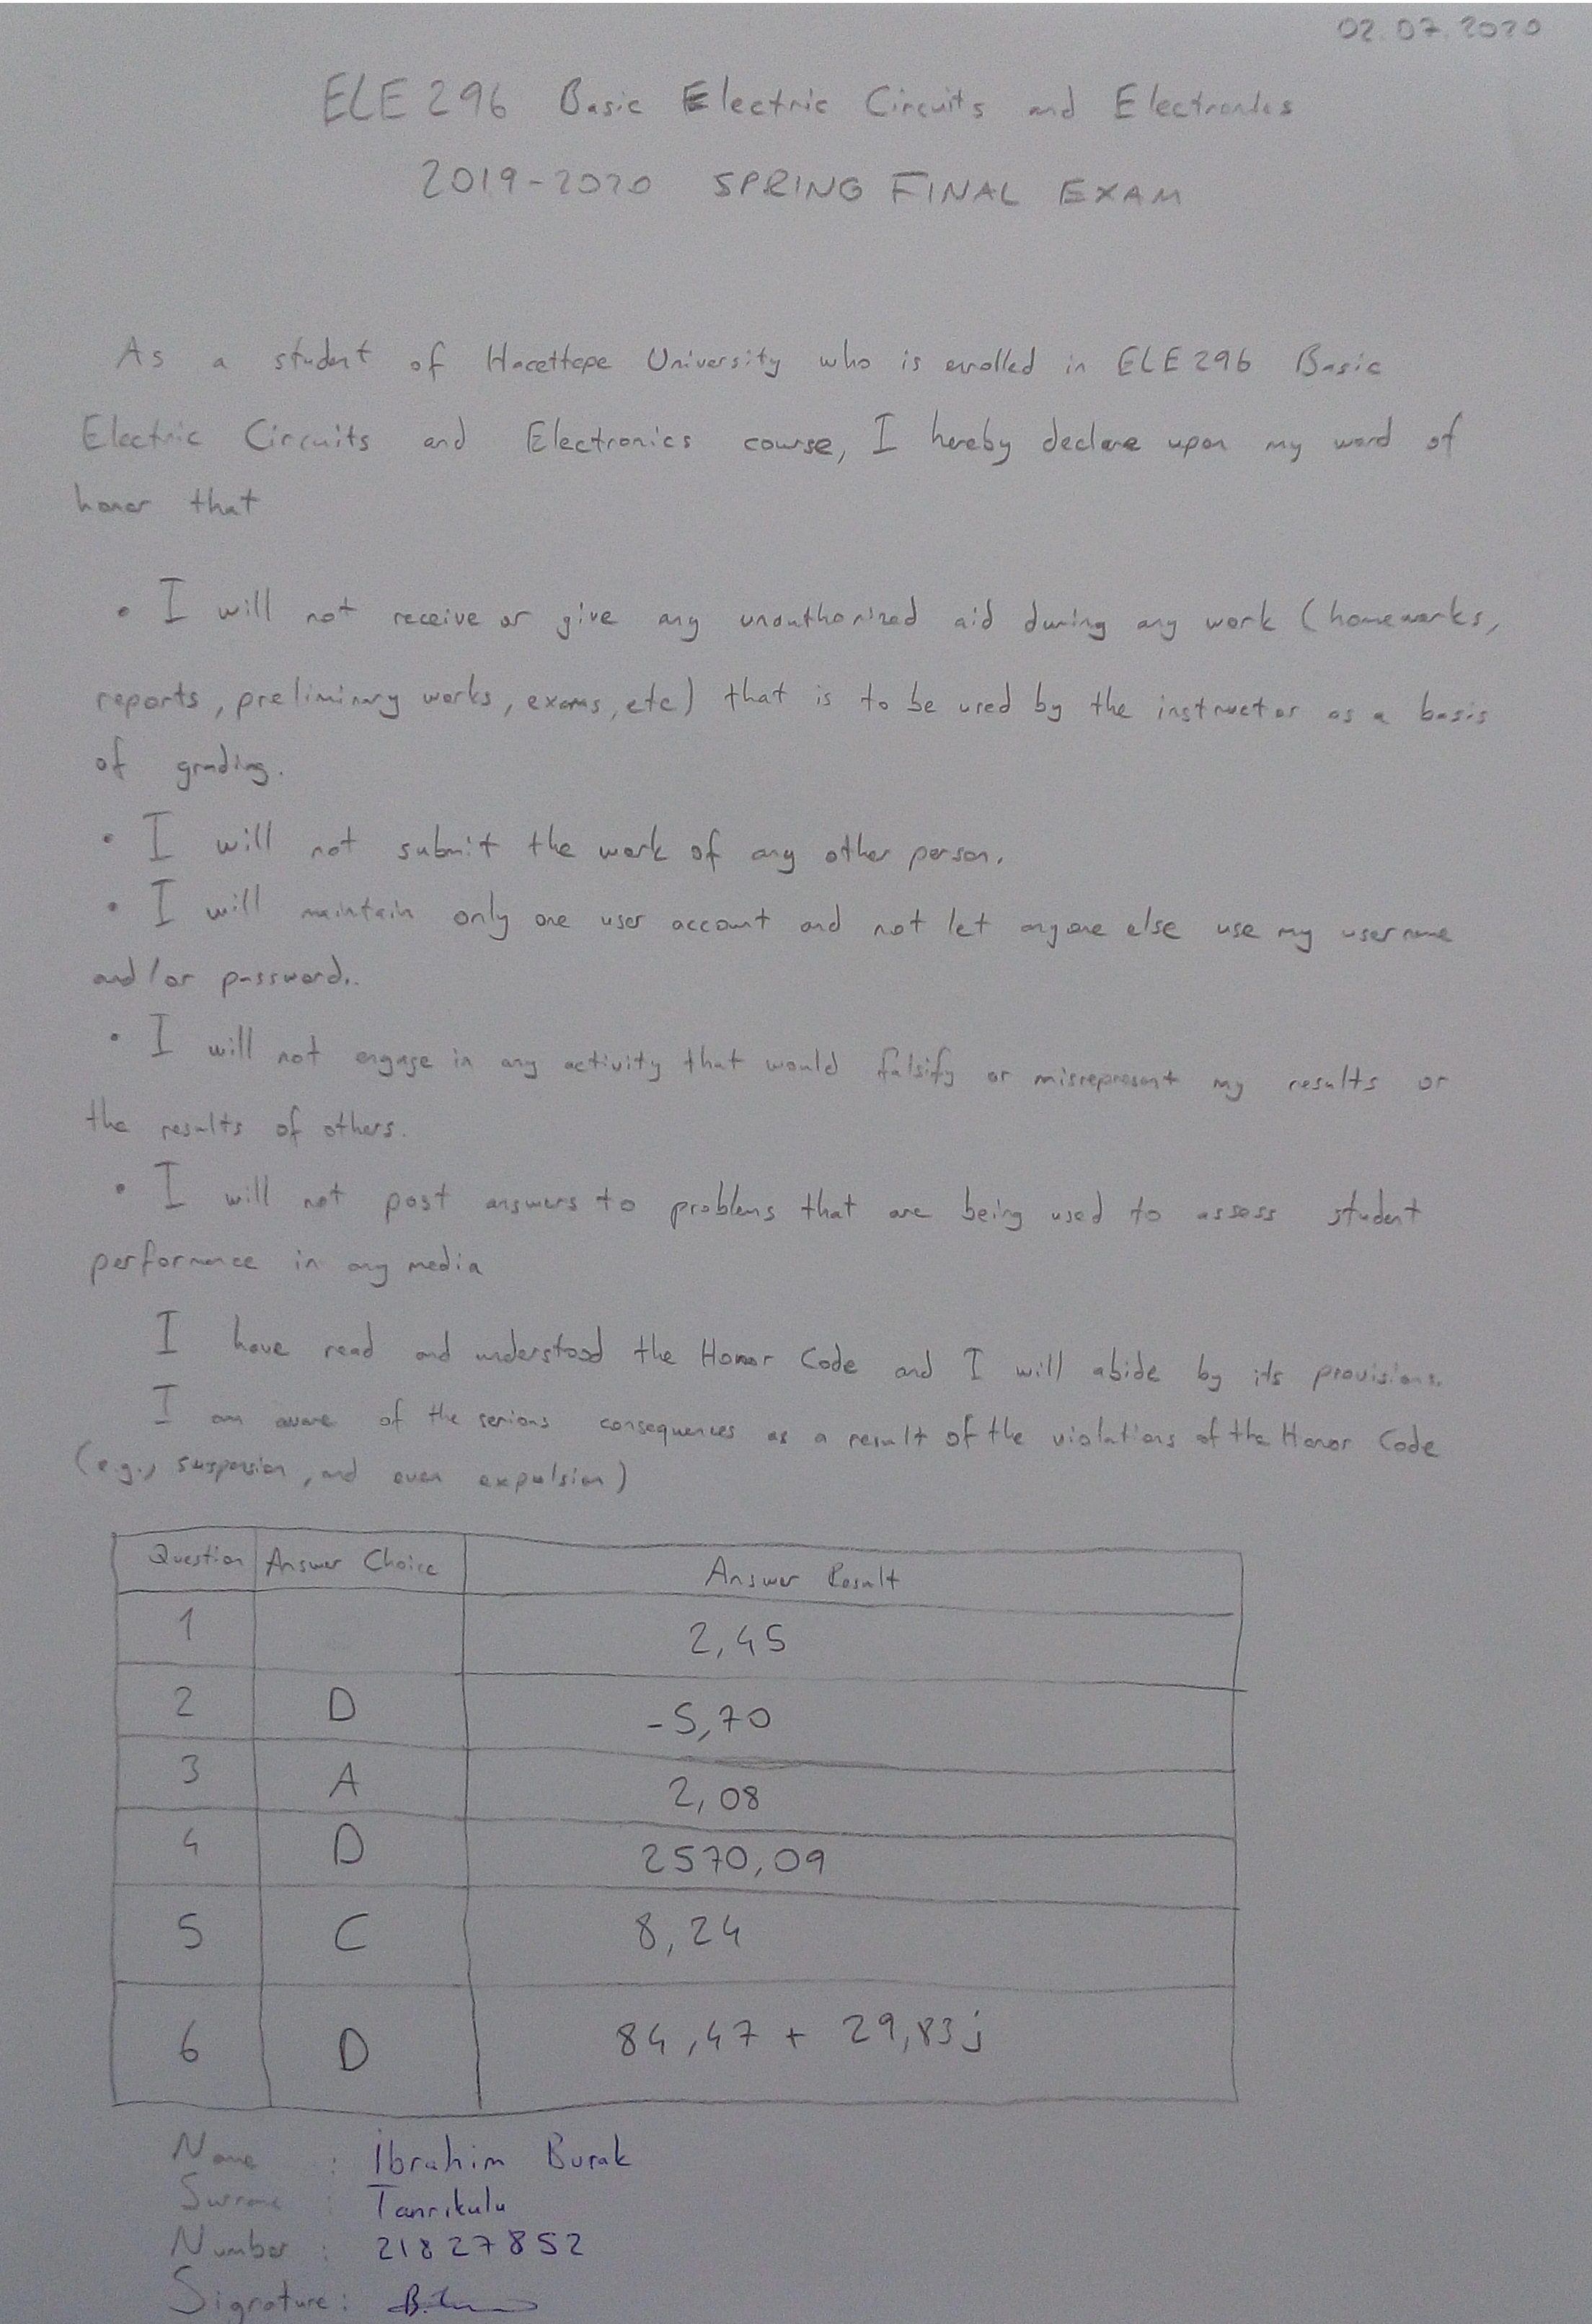 02.07.2020
ELE 296 Basic Electric Circuits and Electronics
2019-2020 SPRING FINAL EXAM
As a student of Hacettepe University who is enrolled in ELE 296 Basic
Electric Circuits and Electronics course, I hereby declare upon my word of
honor that
• I will not receive or give any unauthorized aid during any work (homeworks,
reports, preliminary works, exams, etc) that is to be used by the instructor as a basis
of grading.
• I will not submit the work of any other person.
• I will maintain only one user account and not let anyone else use my username
and/or password..
• I will not engage in any activity that would falsify or misrepresent my results or
the results of others.
• I will not post answers to problems that are being used to assess student
performance in any media
I have read and understood the Honor Code and I will abide by its provisions.
I am aware of the serious consequences as a result of the violations of the Honor Code
(e.g., suspension, and even expulsion)
Question Answer Choice Answer Result
1 2,45
2 D -5,70
3 A 2,08
4 D 2570,09
5 C 8,24
6 D 84,47 + 29,83j
Name : İbrahim Burak
Surname : Tanrıkulu
Number : 21827852
Signature :